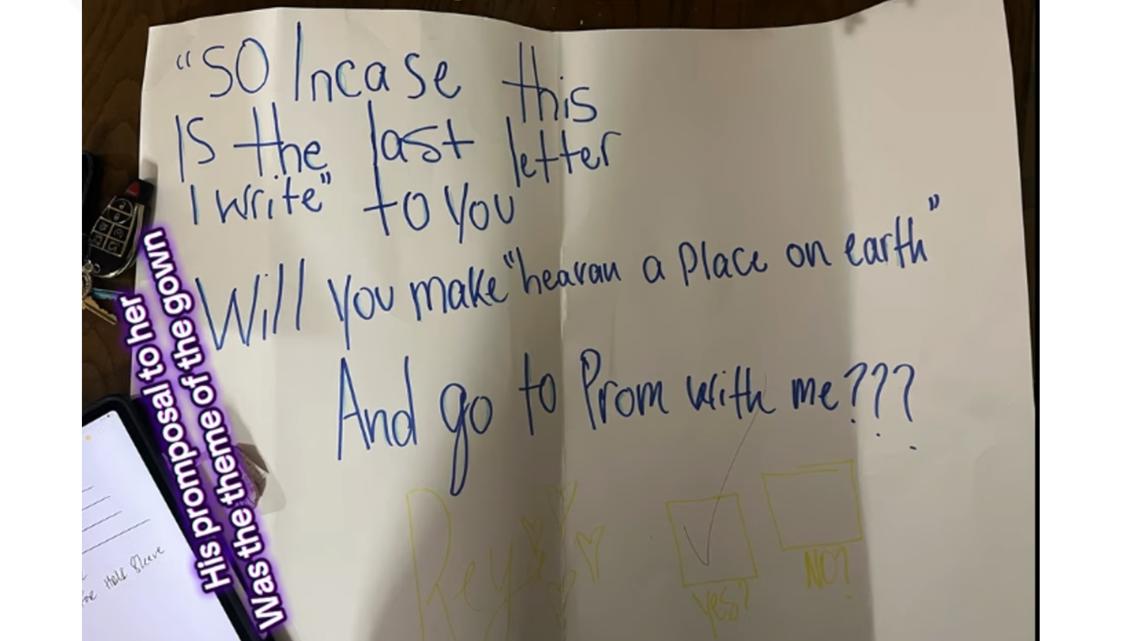 "SO Incase this
Is the last letter
I write" to you
Will you make "heavan a place on earth"
And go to Prom with me???
Yes?
NO?
His promposal to her
Was the theme of the gown
Half Sleeve